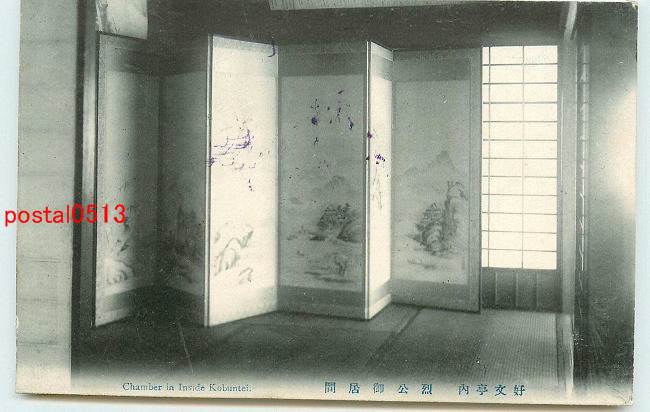 postal0513
Chamber in Inside Kobuntei.
間居御公烈 內亭文好